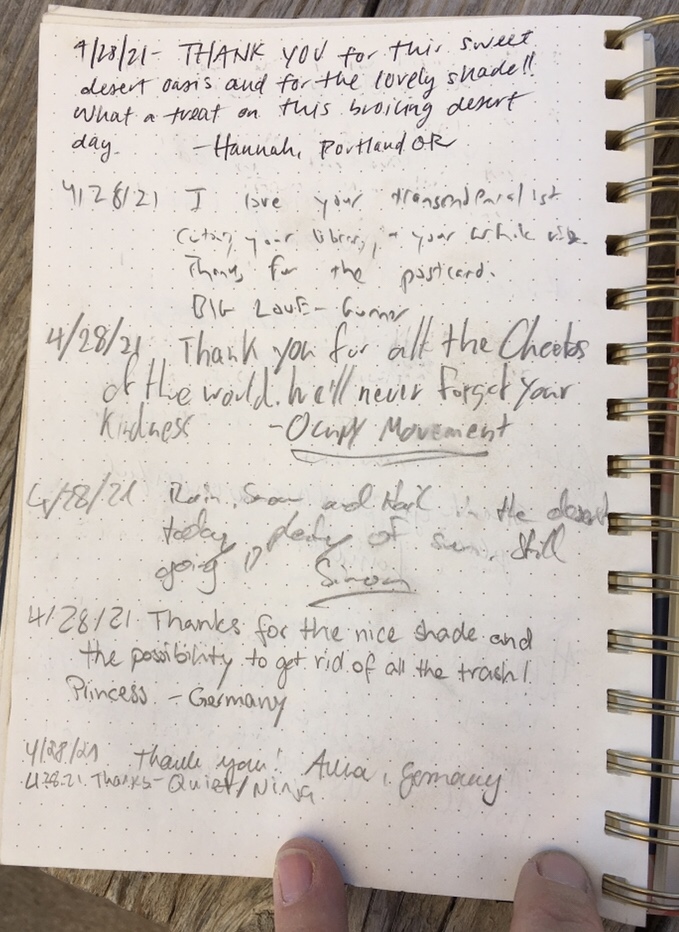 4/28/21- THANK YOU for this sweet
desert oasis and for the lovely shade!!
What a treat on this broiling desert
day. -Hannah, Portland OR
4/28/21 I love your transendentalist
your library, + your whole
Thanks for the postcard.
BIG LOVE- Gunnar
4/28/21 Thank you for all the Cheetos
of the world. We'll never forget your
Kindness -Occupy Movement
4/28/21 Rain, Snow and Hail in the desert
today, plenty of sun. Still
going Simon
4/28/21 Thanks for the nice shade and
the possibility to get rid of all the trash!
Princess - Germany
4/28/21 Thank you! Anna, Germany
4.28.21. Thanks- Quiet/Ninja